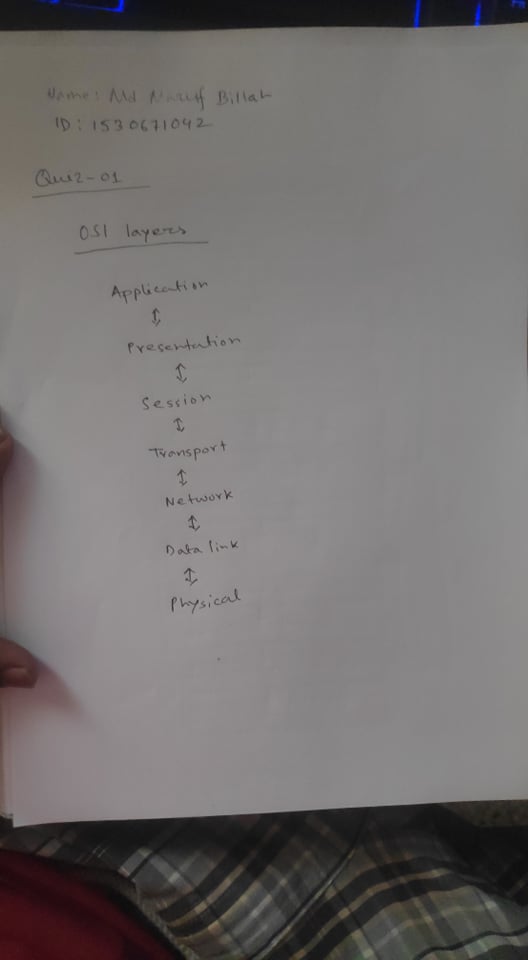 Name: Md Maruf Billah
ID: 1530671042
Quiz-01
OSI layers
Application
↕
Presentation
↕
Session
↕
Transport
↕
Network
↕
Data link
↕
Physical